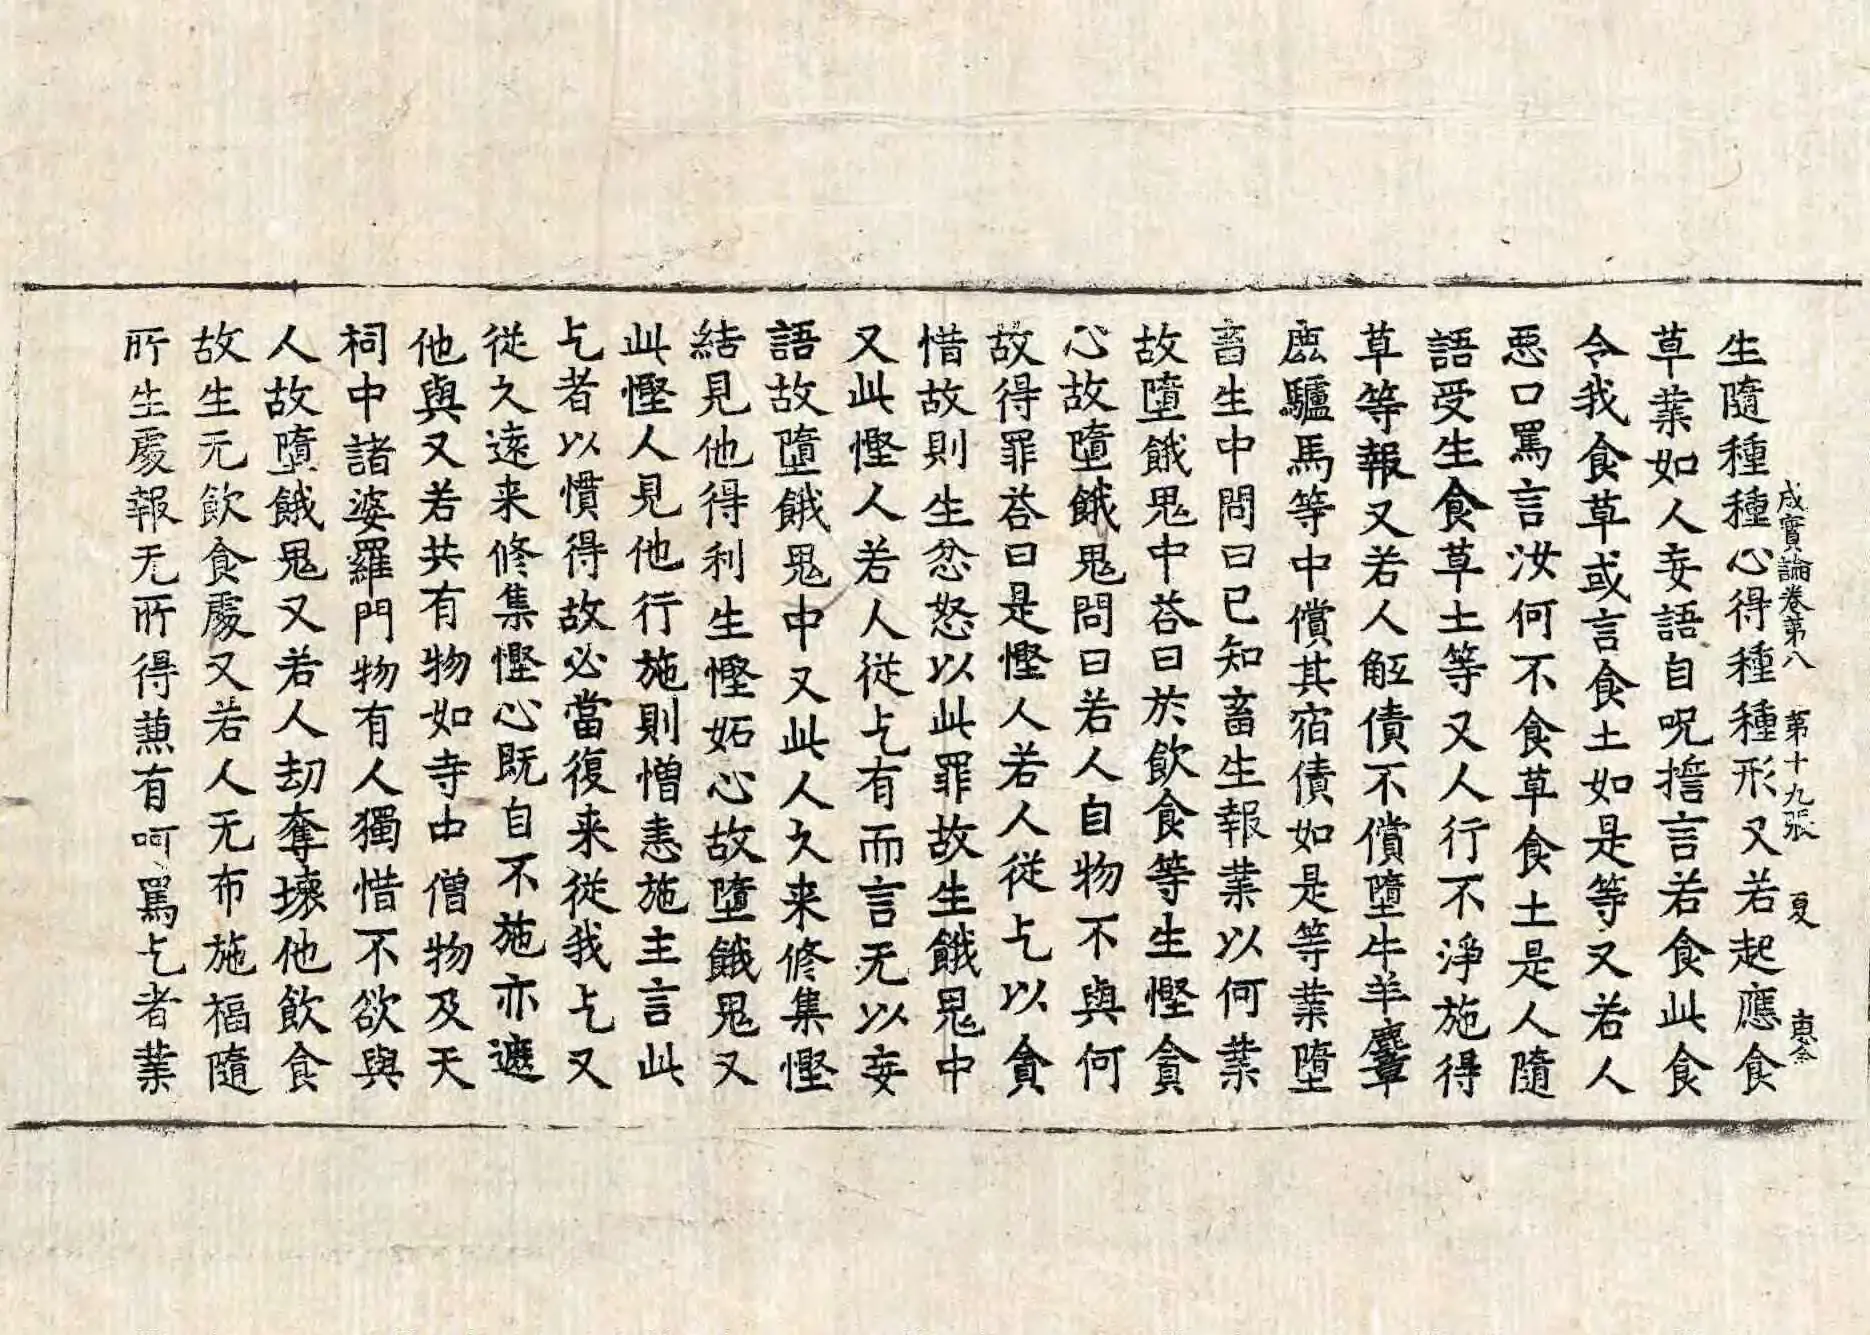 成實論卷第八　第十九張　夏
生隨種種心得種種形又若起應食
草業如人妄語自呪擔言若食此食
令我食草或言食土如是等又若人
惡口罵言汝何不食草食土是人隨
語受生食草土等又人行不淨施得
草等報又若人觝債不償墮牛羊麞
鹿驢馬等中償其宿債如是等業墮
畜生中問曰已知畜生報業以何業
故墮餓鬼中荅曰於飲食等生慳貪
心故墮餓鬼問曰若人自物不與何
故得罪荅曰是慳人若人從乞以貪
惜故則生忿怒以此罪故生餓鬼中
又此慳人若人從乞有而言无以妄
語故墮餓鬼中又此人久来修集慳
結見他得利生慳妬心故墮餓鬼又
此慳人見他行施則憎恚施主言此
乞者以慣得故必當復来從我乞又
從久遠来修集慳心既自不施亦遮
他與又若共有物如寺中僧物及天
祠中諸婆羅門物有人獨惜不欲與
人故墮餓鬼又若人劫奪壞他飲食
故生无飲食處又若人无布施福隨
所生處報无所得兼有呵罵乞者業